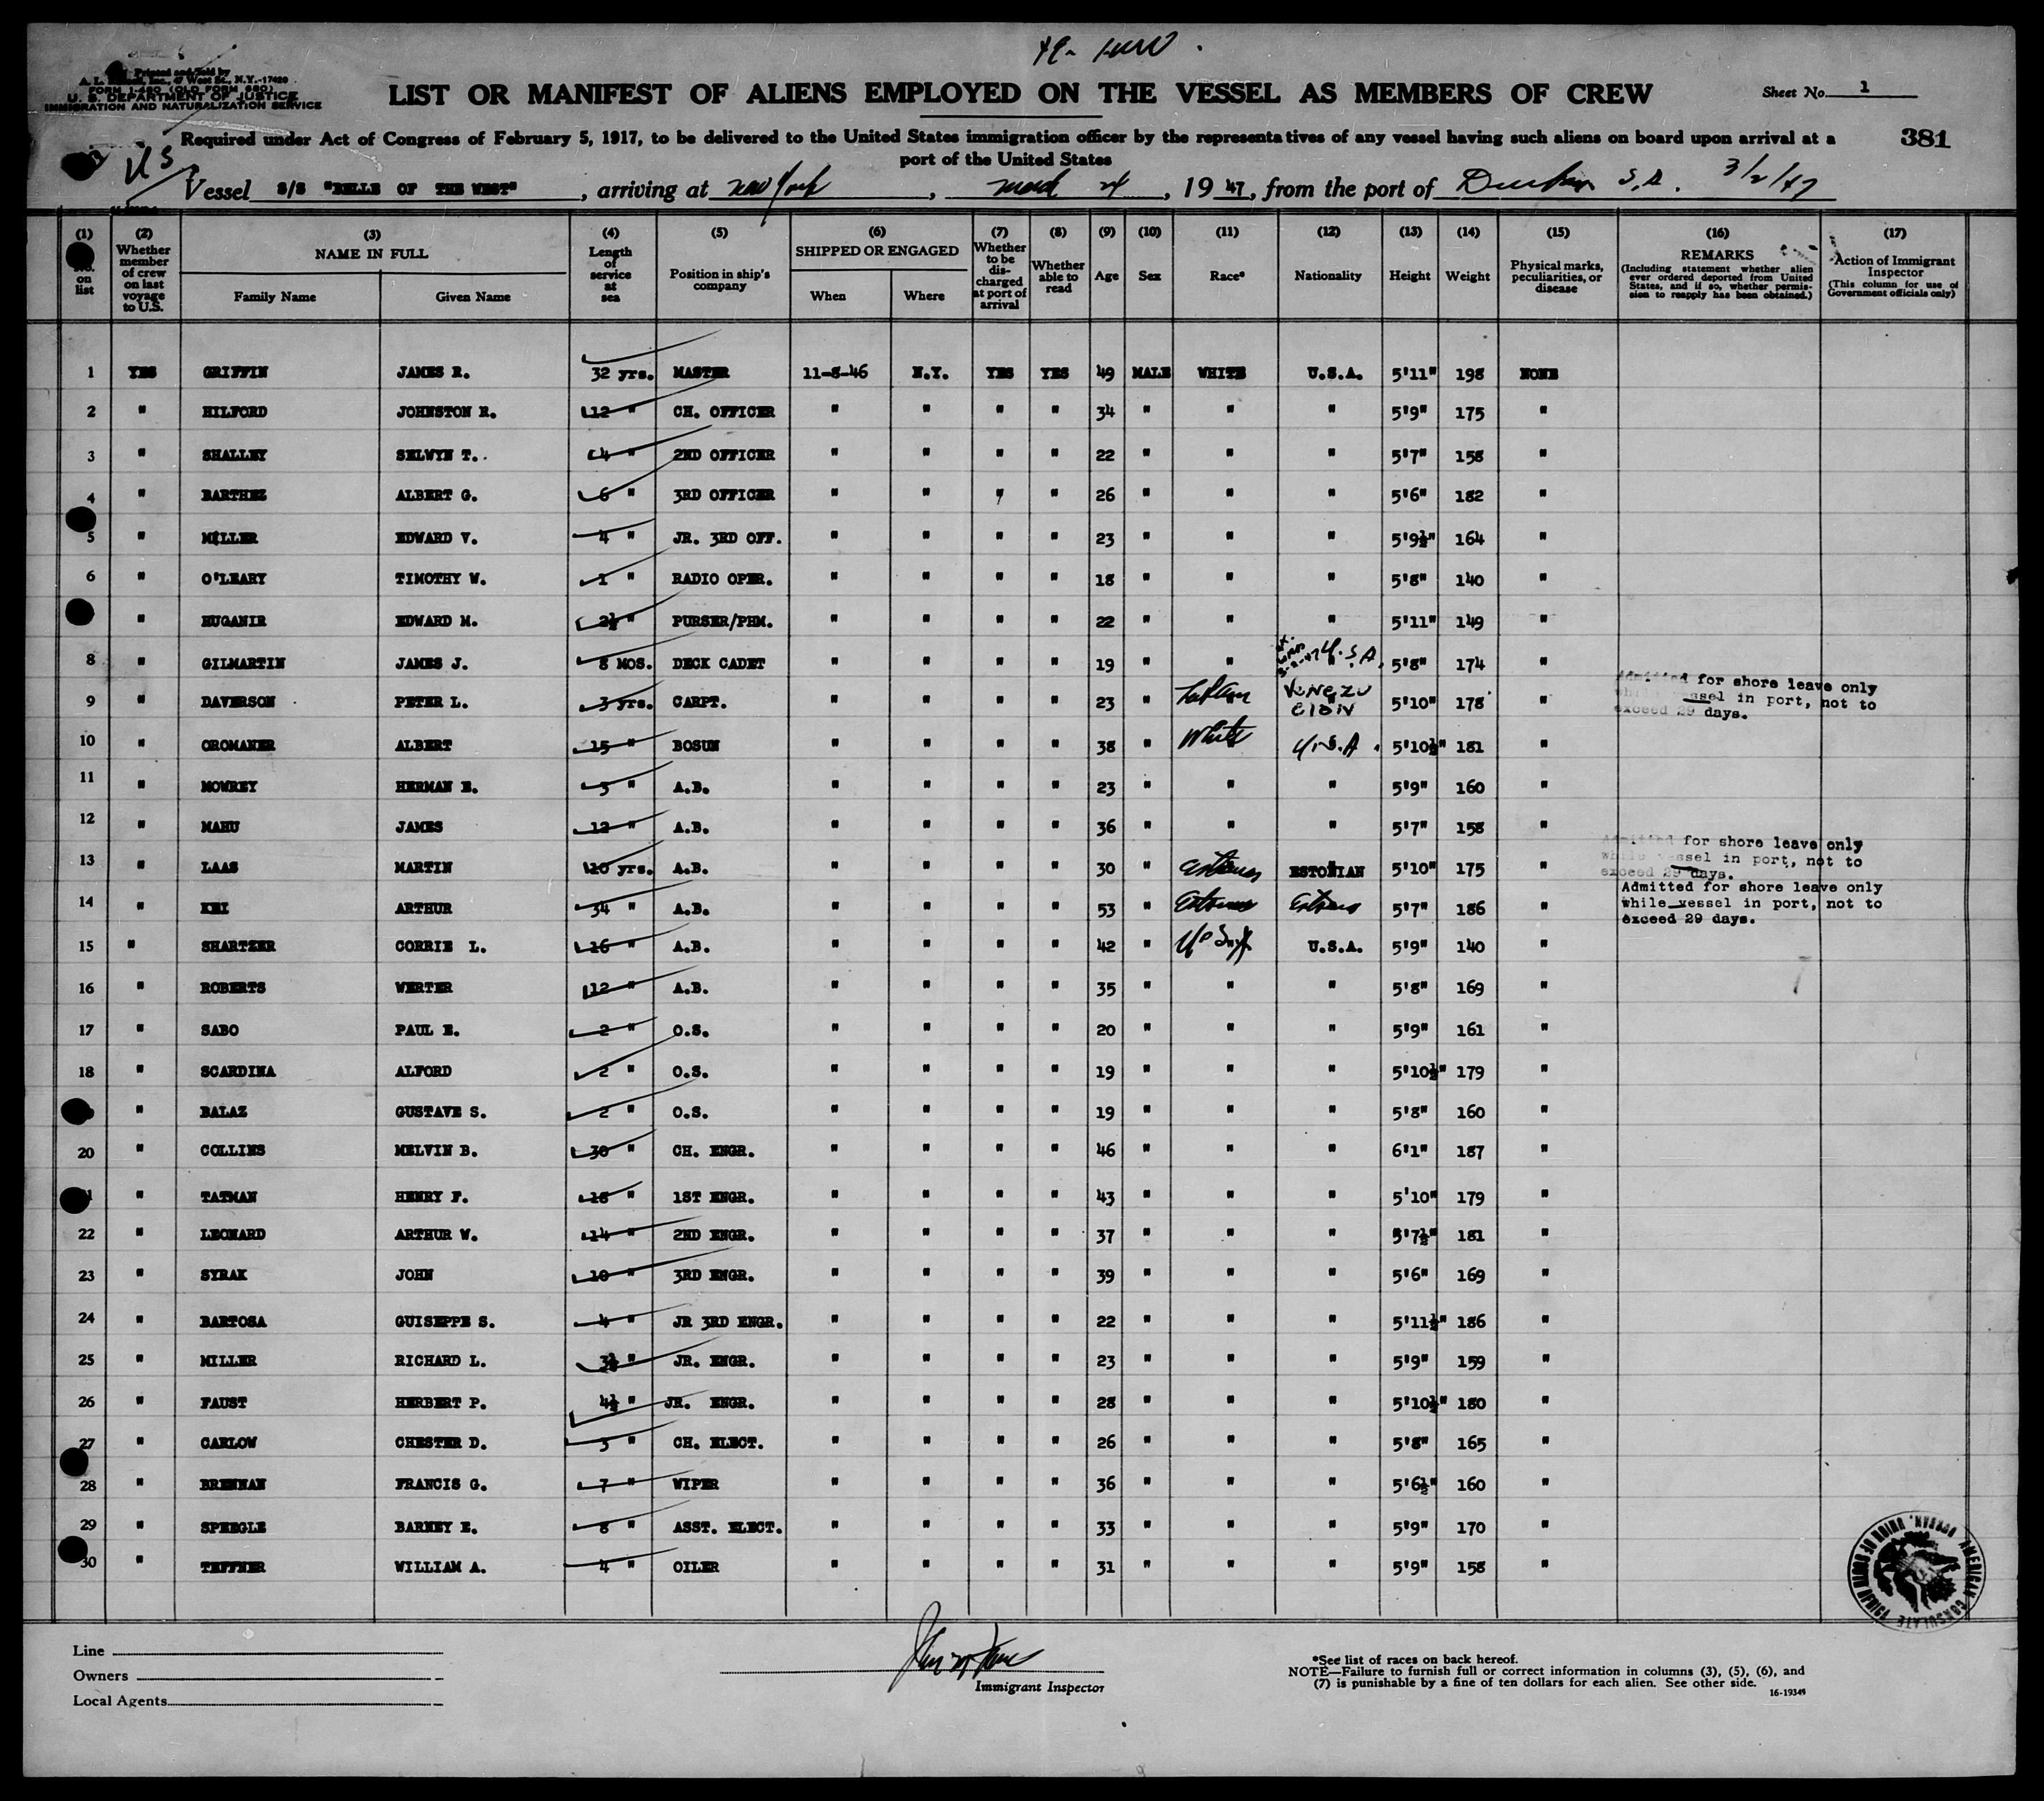 Printed and Sold by
A. L. Inc., 47 West St., N.Y.-17420
FORM I-480 (OLD FORM 680)
U. S. DEPARTMENT OF JUSTICE
IMMIGRATION AND NATURALIZATION SERVICE
LIST OR MANIFEST OF ALIENS EMPLOYED ON THE VESSEL AS MEMBERS OF CREW
Sheet No. 1
Required under Act of Congress of February 5, 1917, to be delivered to the United States immigration officer by the representatives of any vessel having such aliens on board upon arrival at a
port of the United States
381
US
Vessel S/S "BELLE OF THE WEST", arriving at New York, March 24, 1947, from the port of Durban S.A. 3/2/47
(1) No. on list (2) Whether member of crew on last voyage to U.S. (3) NAME IN FULL Family Name Given Name (4) Length of service at sea (5) Position in ship's company (6) SHIPPED OR ENGAGED When Where (7) Whether to be discharged at port of arrival (8) Whether able to read (9) Age (10) Sex (11) Race* (12) Nationality (13) Height (14) Weight (15) Physical marks, peculiarities, or disease (16) REMARKS (Including statement whether alien ever ordered deported from United States, and if so, whether permission to reapply has been obtained.) (17) Action of Immigrant Inspector (This column for use of Government officials only)
1 YES GRIFFIN JAMES R. 32 yrs. MASTER 11-8-46 N.Y. YES YES 49 MALE WHITE U.S.A. 5'11" 198 NONE
2 " HILFORD JOHNSTON R. 12 " CH. OFFICER " " " " 34 " " " 5'9" 175 "
3 " SHALLEY SELWYN T. 4 " 2ND OFFICER " " " " 22 " " " 5'7" 158 "
4 " BARTHEZ ALBERT G. 6 " 3RD OFFICER " " " " 26 " " " 5'6" 182 "
5 " MILLER EDWARD V. 4 " JR. 3RD OFF. " " " " 23 " " " 5'9½" 164 "
6 " O'LEARY TIMOTHY W. 1 " RADIO OPER. " " " " 18 " " " 5'8" 140 "
" HUGANIR EDWARD M. 2½ " PURSER/PHM. " " " " 22 " " " 5'11" 149 "
8 " GILMARTIN JAMES J. 8 MOS. DECK CADET " " " " 19 " " " U.S.A. 5'8" 174 "
9 " DAVERSON PETER L. 3 yrs. CARPT. " " " " 23 " Latin VENEZUELAN 5'10" 178 " Admitted for shore leave only while vessel in port, not to exceed 29 days.
10 " CROMANER ALBERT 15 " BOSUN " " " " 38 " White U.S.A. 5'10½" 181 "
11 " MOWREY HERMAN E. 3 " A.B. " " " " 23 " " " 5'9" 160 "
12 " MAHU JAMES 12 " A.B. " " " " 36 " " " 5'7" 158 "
13 " LAAS MARTIN 10 yrs. A.B. " " " " 30 " ESTONIAN 5'10" 175 " Admitted for shore leave only while vessel in port, not to exceed 29 days.
14 " KEI ARTHUR 34 " A.B. " " " " 53 " 5'7" 186 " Admitted for shore leave only while vessel in port, not to exceed 29 days.
15 " SHARTZER CORRIE L. 16 " A.B. " " " " 42 " U.S.A. U.S.A. 5'9" 140 "
16 " ROBERTS WERTER 12 " A.B. " " " " 35 " " " 5'8" 169 "
17 " SABO PAUL E. 2 " O.S. " " " " 20 " " " 5'9" 161 "
18 " SCARDINA ALFORD 2 " O.S. " " " " 19 " " " 5'10½" 179 "
" BALAZ GUSTAVE S. 2 " O.S. " " " " 19 " " " 5'8" 160 "
20 " COLLINS MELVIN B. 30 " CH. ENGR. " " " " 46 " " " 6'1" 187 "
" TATMAN HENRY F. 18 " 1ST ENGR. " " " " 43 " " " 5'10" 179 "
22 " LEONARD ARTHUR W. 14 " 2ND ENGR. " " " " 37 " " " 5'7½" 181 "
23 " SYRAK JOHN 10 " 3RD ENGR. " " " " 39 " " " 5'6" 169 "
24 " BARTOSA GUISEPPE S. 4 " JR 3RD ENGR. " " " " 22 " " " 5'11½" 186 "
25 " MILLER RICHARD L. 3½ " JR. ENGR. " " " " 23 " " " 5'9" 159 "
26 " FAUST HERBERT P. 4½ " JR. ENGR. " " " " 28 " " " 5'10½" 180 "
27 " CARLOW CHESTER D. 3 " CH. ELECT. " " " " 26 " " " 5'8" 165 "
28 " BRENNAN FRANCIS G. 7 " WIPER " " " " 36 " " " 5'6½" 160 "
29 " SPEEGLE BARNEY E. 8 " ASST. ELECT. " " " " 33 " " " 5'9" 170 "
30 " TEFFNER WILLIAM A. 4 " OILER " " " " 31 " " " 5'9" 158 "
AMERICAN CONSULATE DURBAN, UNION OF SOUTH AFRICA
Line
Owners
Local Agents
Immigrant Inspector
*See list of races on back hereof.
NOTE—Failure to furnish full or correct information in columns (3), (5), (6), and
(7) is punishable by a fine of ten dollars for each alien. See other side.
16-19349